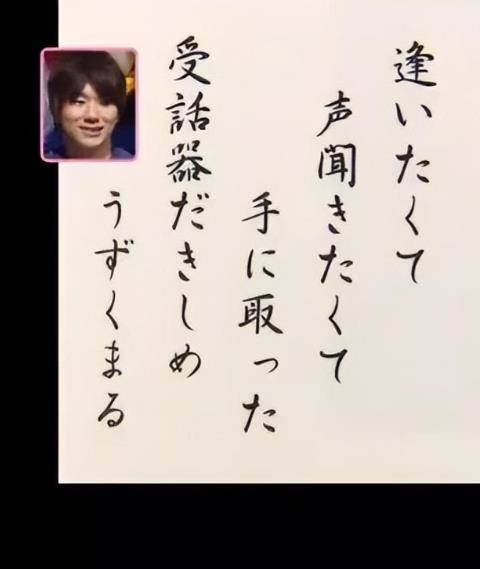 逢いたくて
声聞きたくて
手に取った
受話器だきしめ
うずくまる